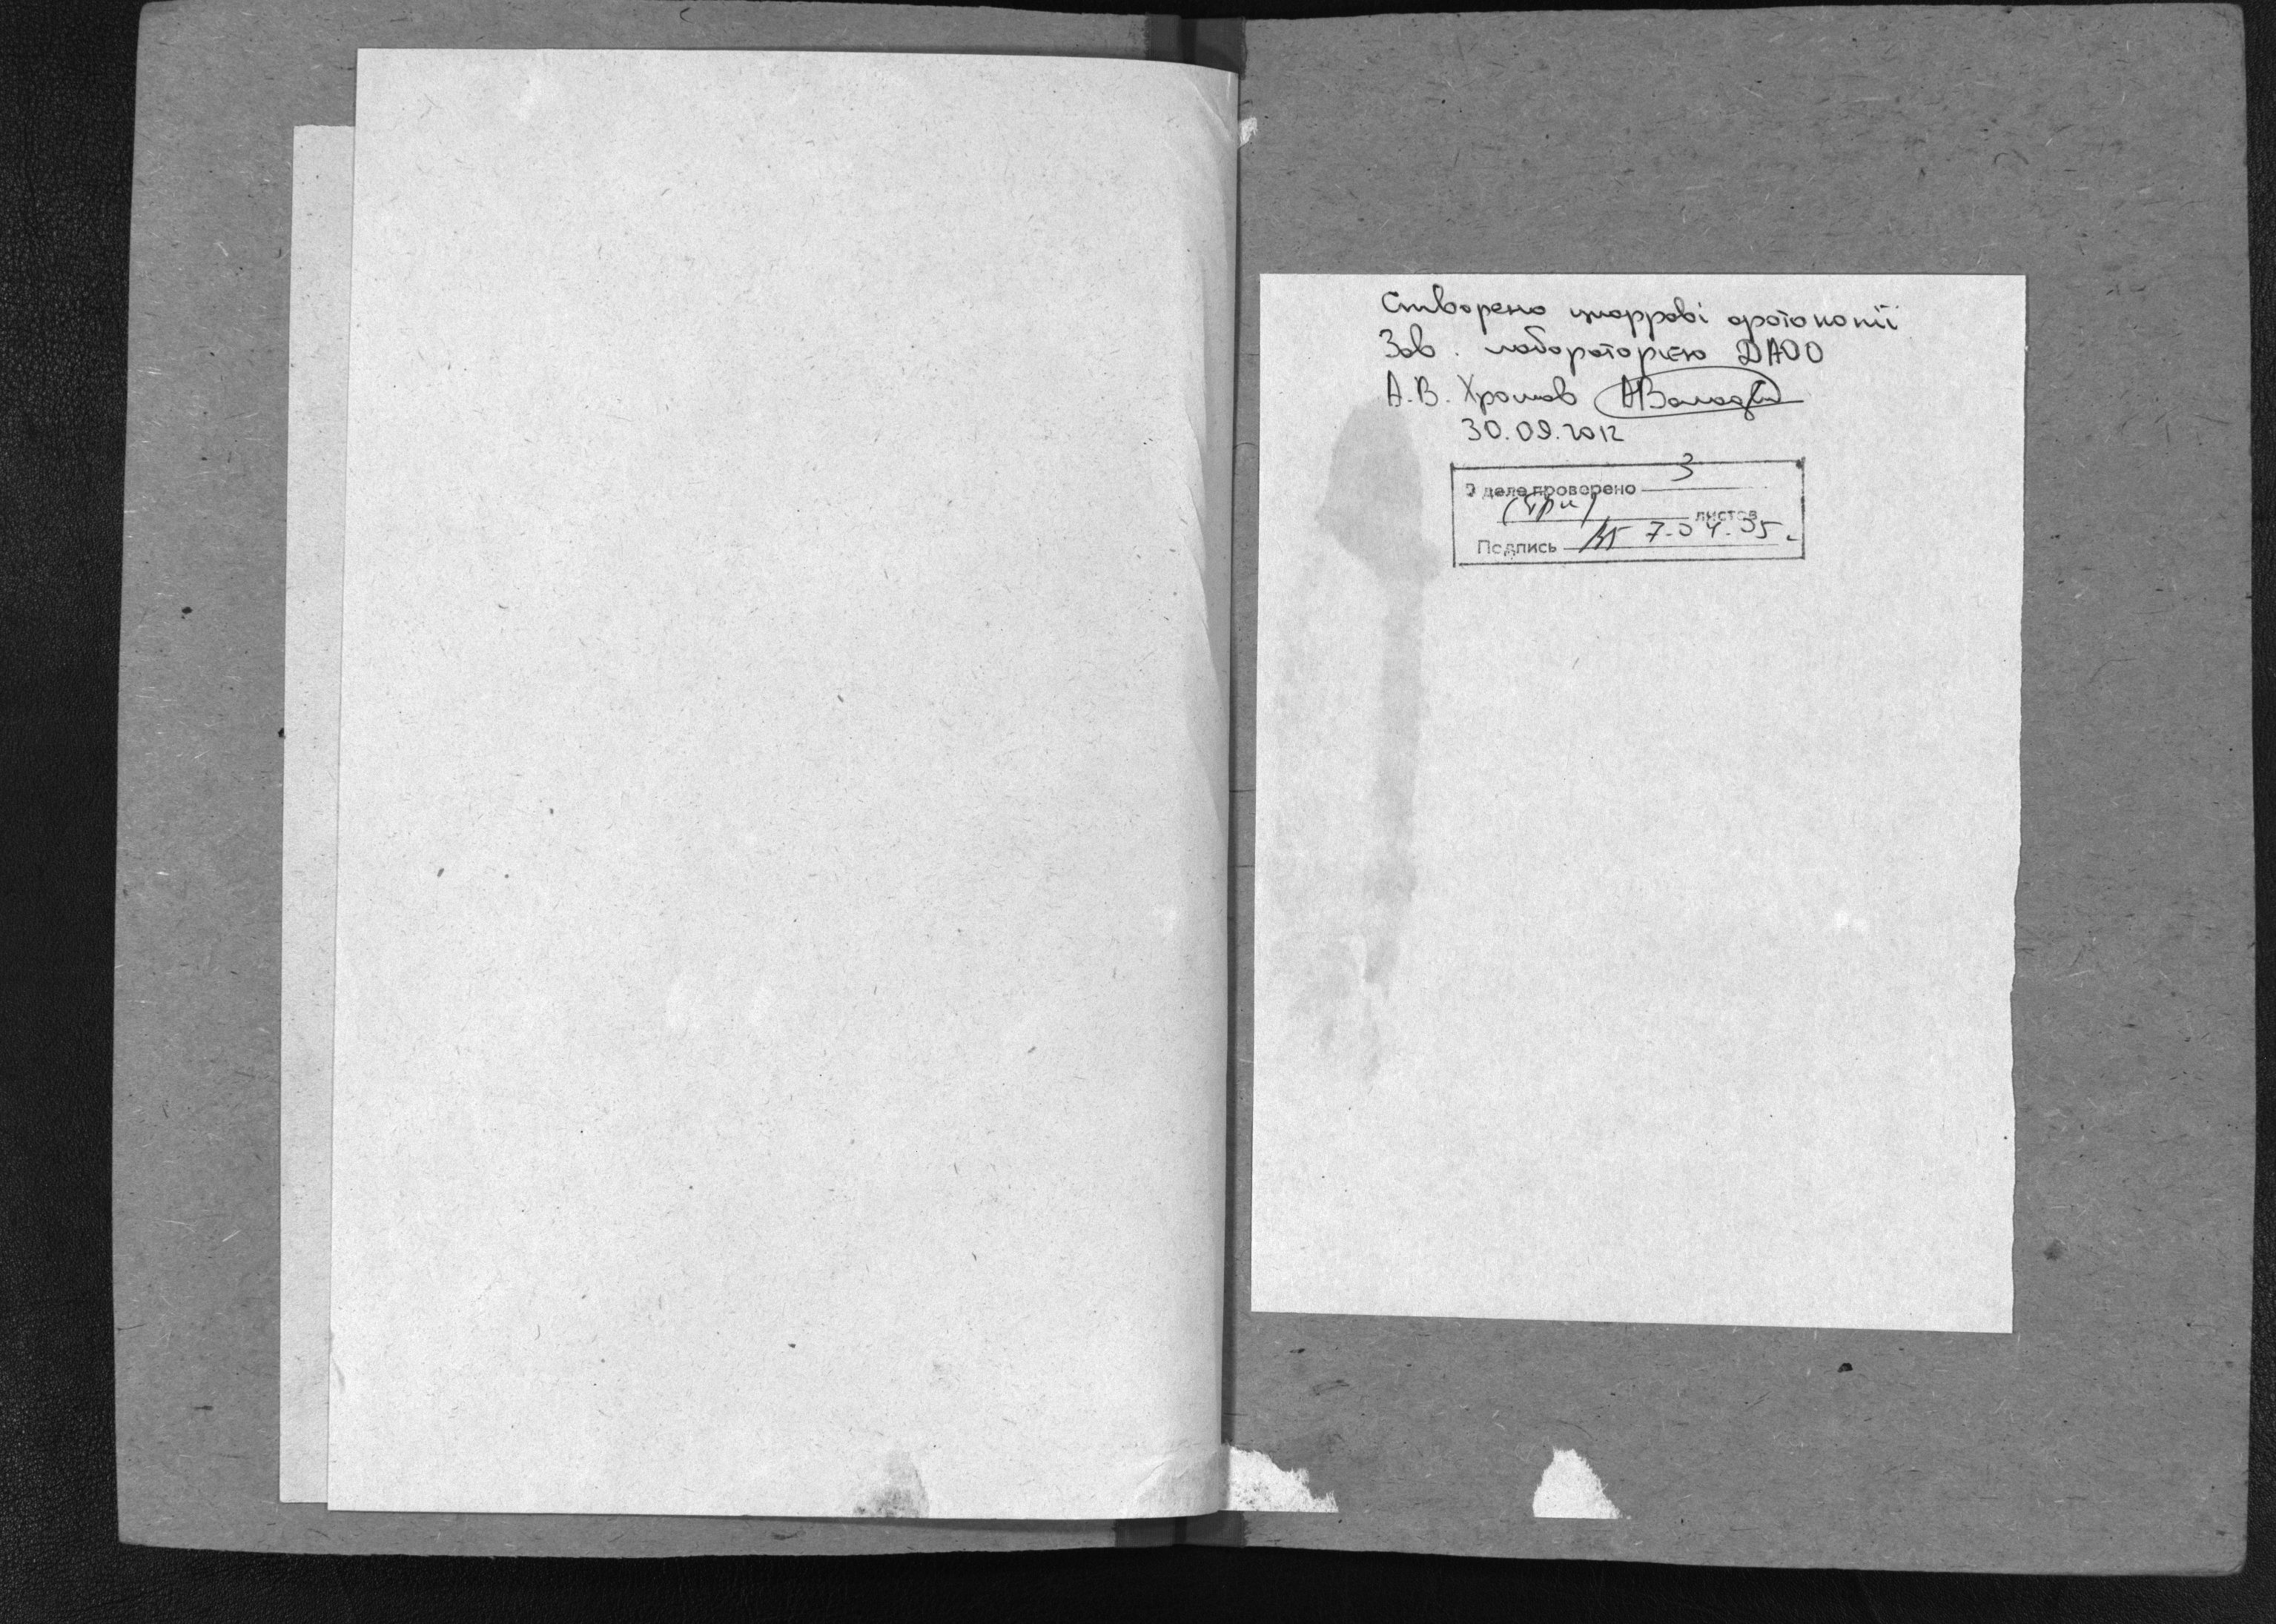 Створено цифрові фотокопії
Зав. лабораторією ДАОО
А.В. Хромов
30.09.2012
В деле проверено 3
(три) листов
Подпись 7.04.05.